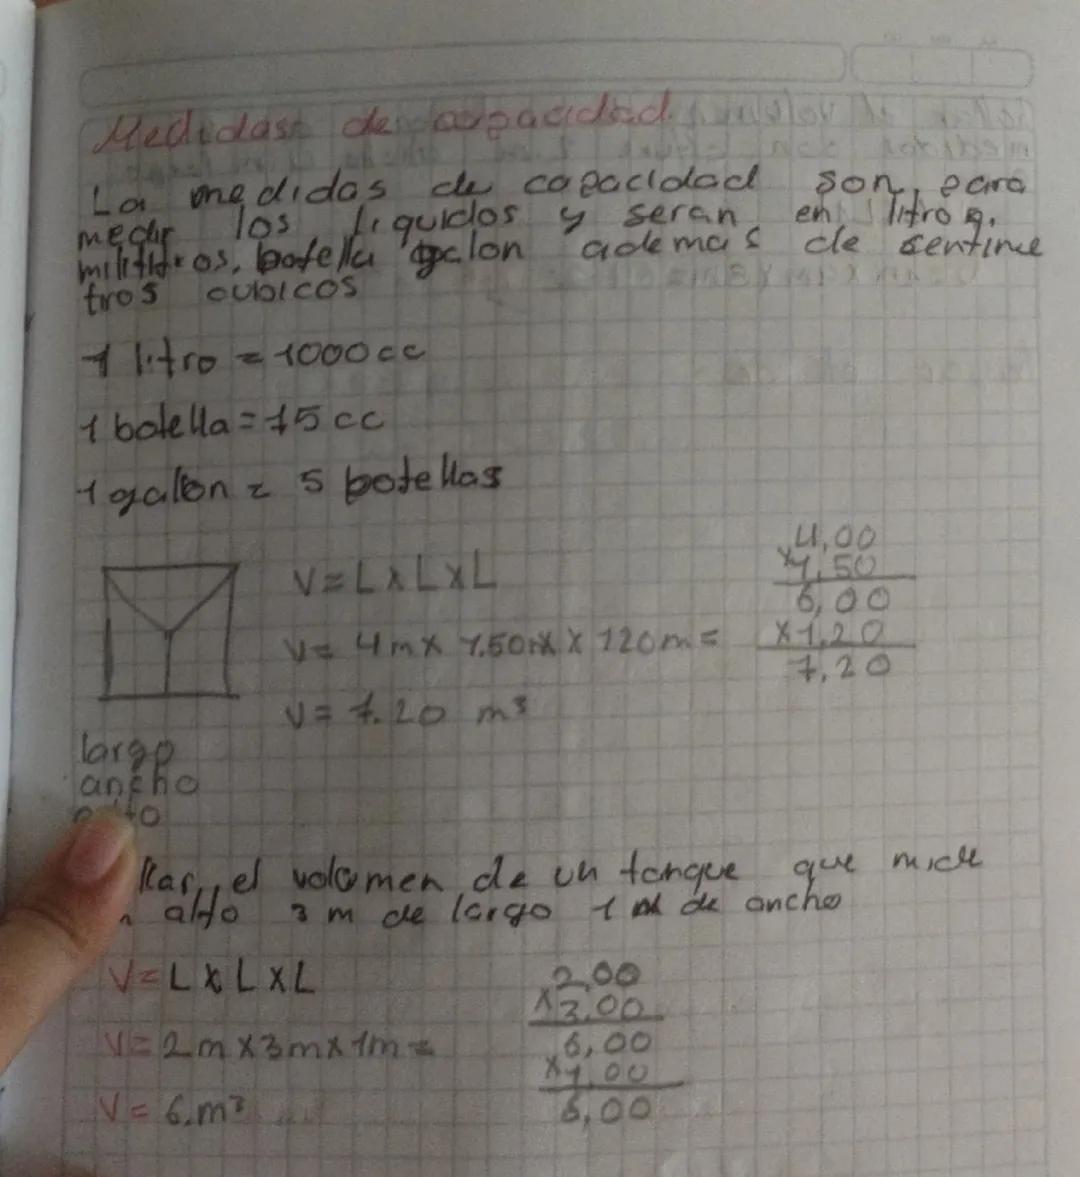 Medidas de capacidad
La medidas de capacidad son, para
medir los liquidos y seran en litros.
mililitros, botella galon ademas de sentime
tros cubicos
1 litro = 1000cc
1 botella = 75 cc
1 galon = 5 botellas
V = L x L x L
V= 4m x 1.50m x 120m =
V= 7.20 m³
4,00
x1,50
6,00
x1,20
7,20
largo
ancho
alto
llar, el volumen de un tanque que mide
alto 3 m de largo 1 m de ancho
V= L x L x L
V= 2m x 3m x 1m =
V= 6.m³
2,00
x3,00
6,00
x1,00
6,00